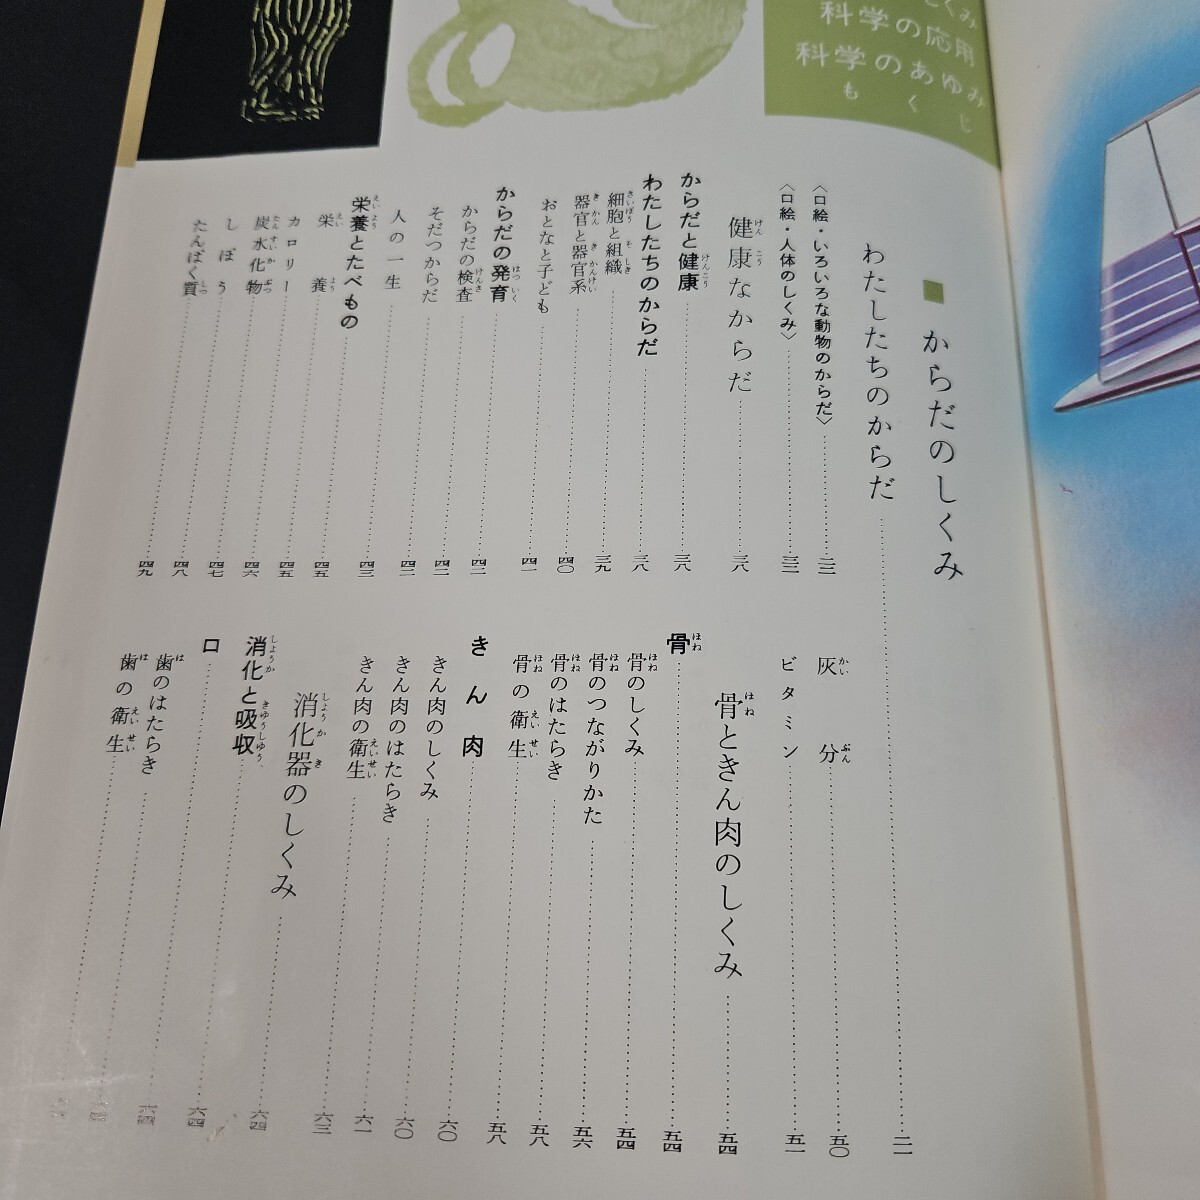 くみ
科学の応用
科学のあゆみ
もくじ
■ からだのしくみ
わたしたちのからだ……二一
〈口絵・いろいろな動物のからだ〉……三三
〈口絵・人体のしくみ〉……三三
健康なからだ……三八
からだと健康……三八
わたしたちのからだ……三八
細胞と組織……三九
器官と器官系……四〇
おとなと子ども……四一
からだの発育……四二
からだの検査……四二
そだつからだ……四二
人の一生……四三
栄養とたべもの……四五
栄養……四五
カロリー……四六
炭水化物……四七
しぼう……四八
たんぱく質……四九
灰分……五〇
ビタミン……五一
骨ときん肉のしくみ……五四
骨……五四
骨のしくみ……五四
骨のつながりかた……五六
骨のはたらき……五八
骨の衛生……五八
きん肉……六〇
きん肉のしくみ……六〇
きん肉のはたらき……六一
きん肉の衛生……六三
消化器のしくみ……六四
消化と吸収……六四
口……六四
歯のはたらき
歯の衛生